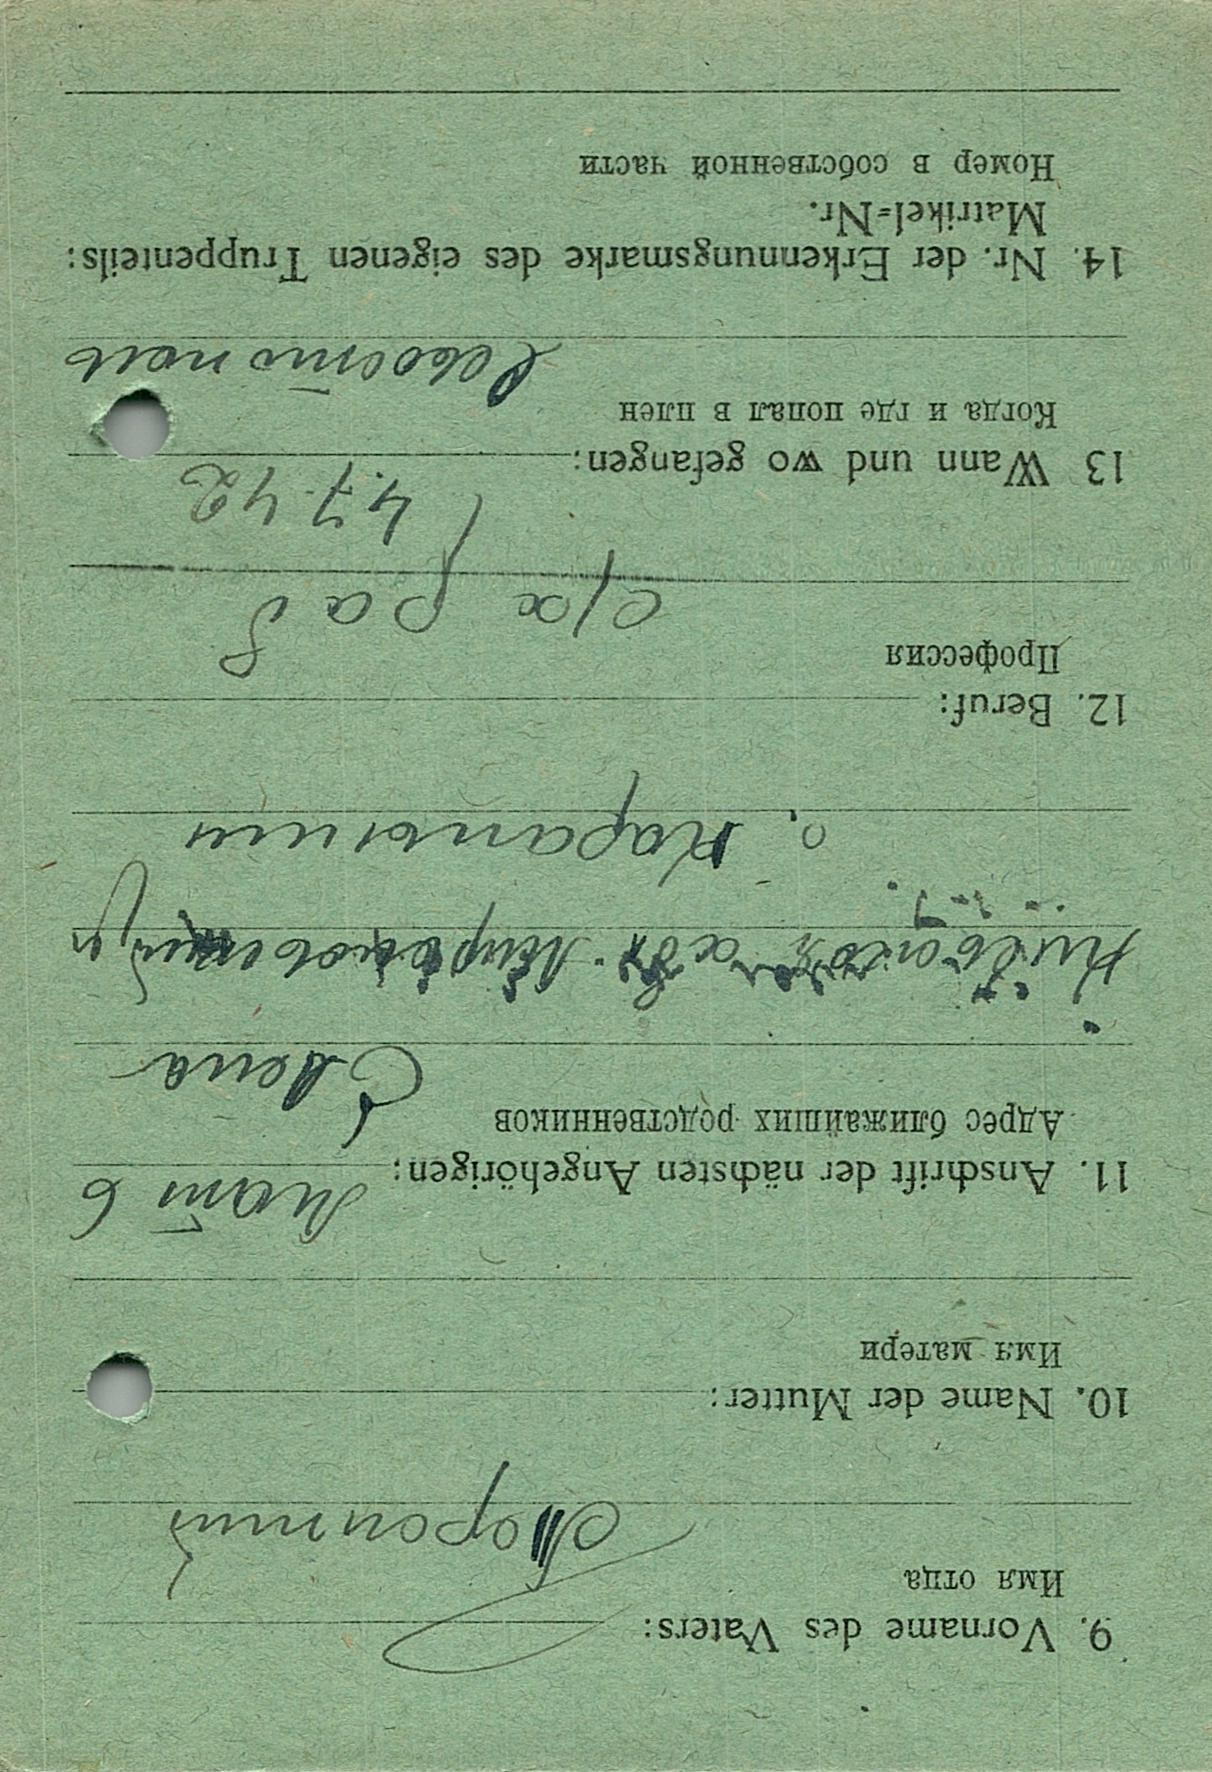 9. Vorname des Vaters:
Имя отца
10. Name der Mutter:
Имя матери
11. Anschrift der nächsten Angehörigen:
Адрес ближайших родственников
Елена
с. Карапыши
12. Beruf:
Профессия
с/х раб
13 Wann und wo gefangen:
4.7.42
Когда и где попал в плен
14. Nr. der Erkennungsmarke des eigenen Truppenteils:
Matrikel-Nr.
Номер в собственной части